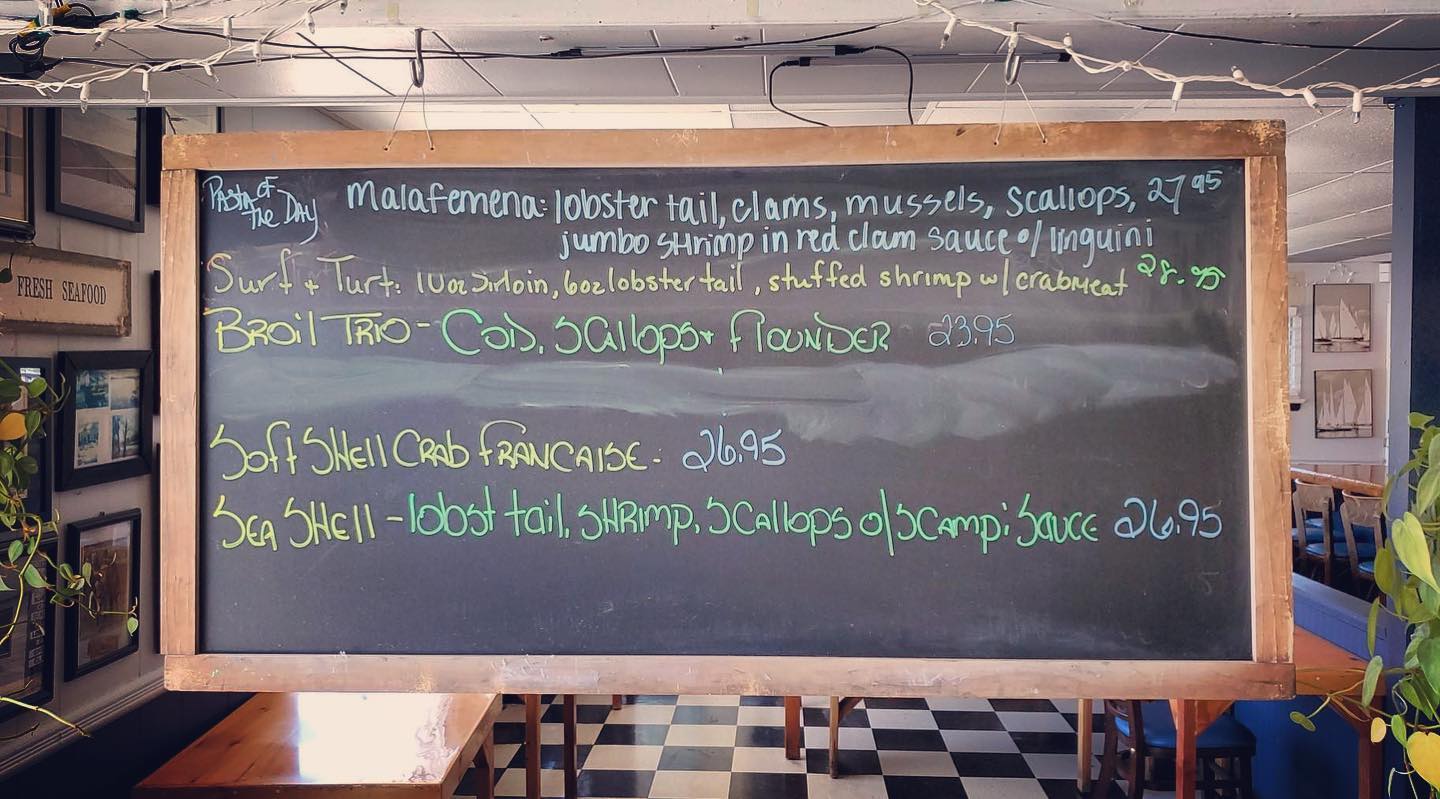 Pasta of
the Day
Malafemena: lobster tail, clams, mussels, scallops, 27 95
jumbo shrimp in red clam sauce o/ linguini
Surf + Turf: 10oz Sirloin, 6oz lobster tail, stuffed shrimp w/ crabmeat 28.95
Broil Trio - Cod, Scallops + Flounder 23.95
Soft Shell Crab Francaise - 26.95
Sea Shell - lobst tail, Shrimp, Scallops o/ Scampi Sauce 26.95
FRESH SEAFOOD